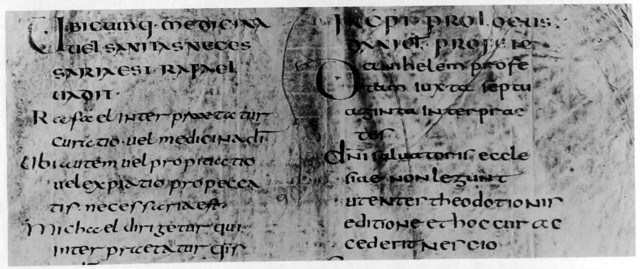 Ubicumq· medicina
uel sanitas neces
saria est rafael
uadit·
Rafael interpraetatur
curatio uel medicina dī
Ubi autem uel propitiatio
uel expiatio propecca
tis· necessaria est
Michael dirigetur qui
interpraetatur qīs
Incipt prologus
danjel profete
Danihelem profe
tam iuxta septu
aginta interprae
tes
dn̄i saluatoris eccle
siae non legunt
utentes theodotionis
editione et hoc cur ac
cederit nescio